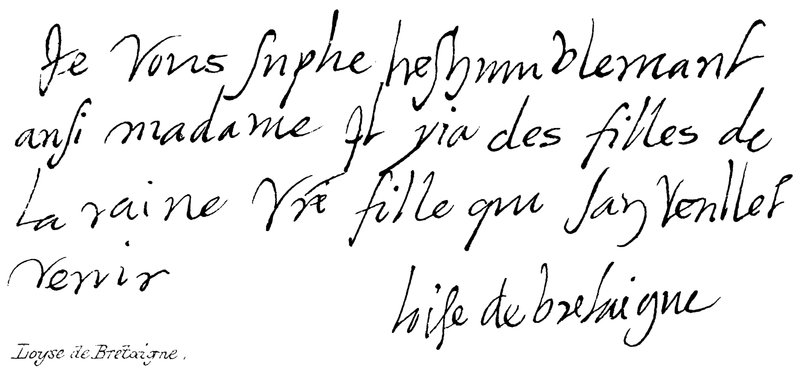 Je vous suplie treshumblemant
ansi madame Il yia des filles de
la raine vre fille qui san veullet
venir
loise de bretaigne
Loyse de Bretaigne.